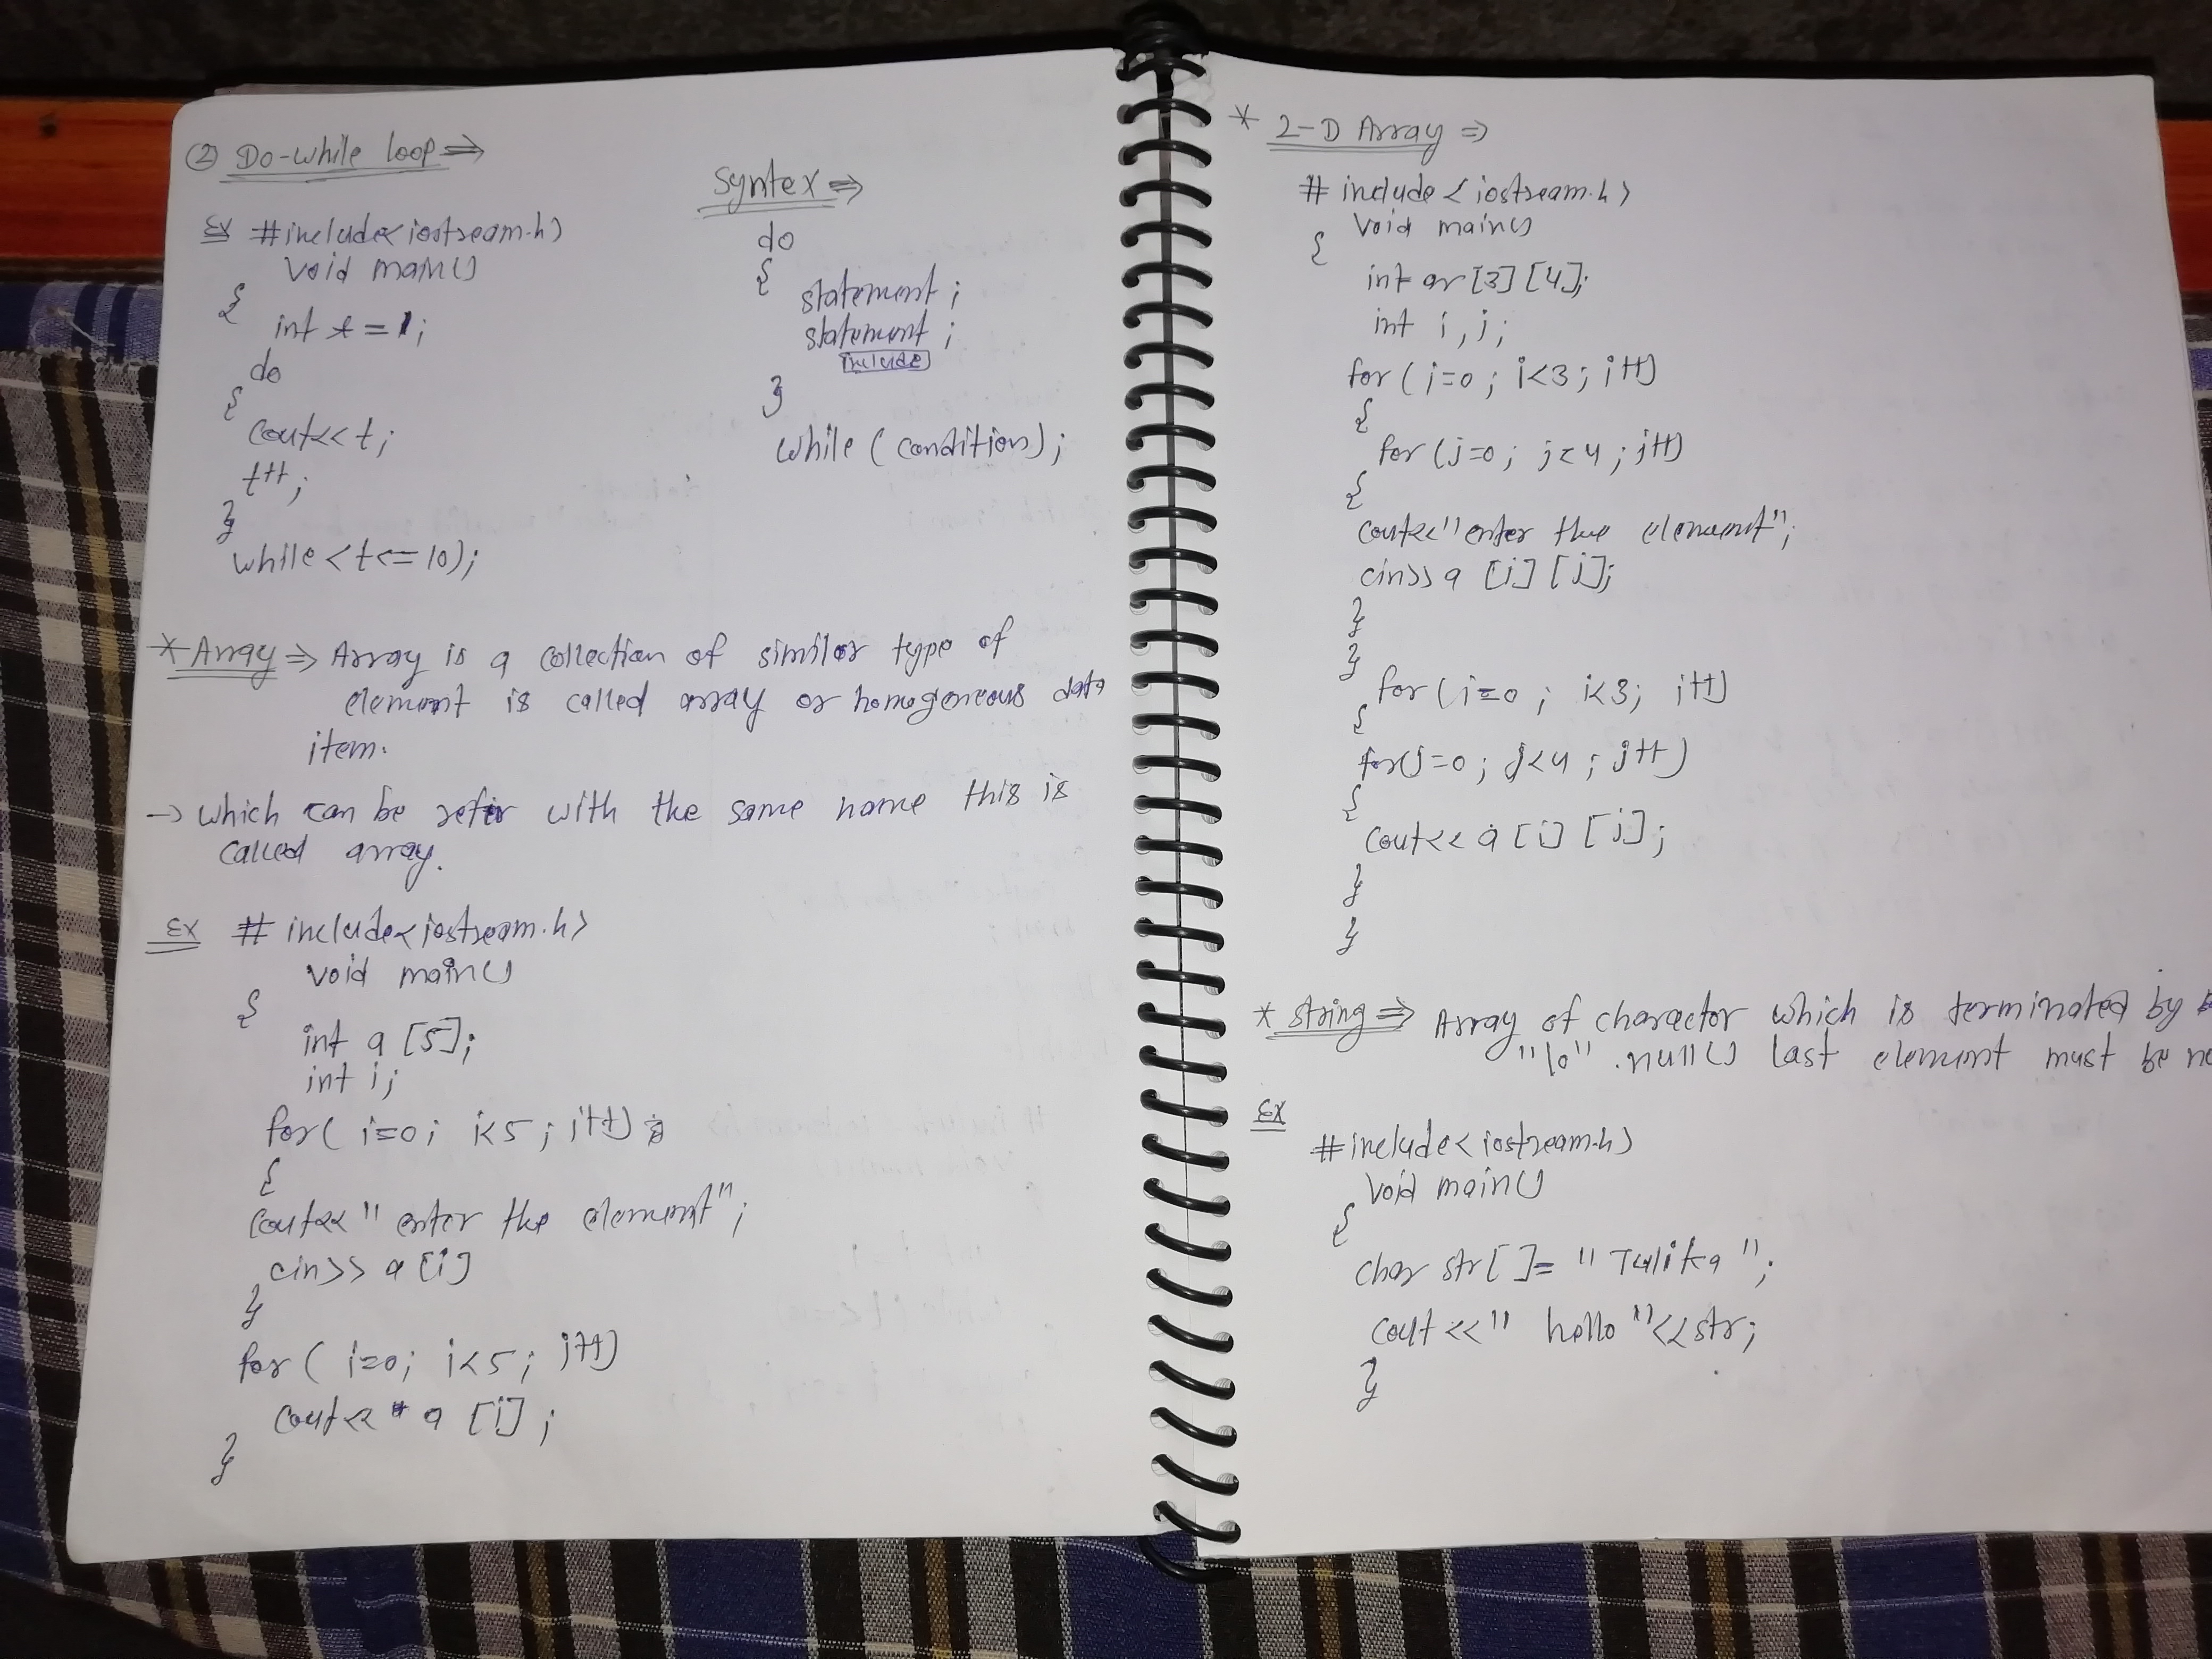 ② Do-while loop ⇒
Ex #include<iostream.h>
void main()
{
int t = 1;
do
{
cout<<t;
t++;
}
while<t<=10);
Syntex ⇒
do
{
statement;
statement;
include
}
while (condition);
* Array ⇒ Array is a collection of similar type of
element is called array or homogeneous data
item.
→ which can be refer with the same name this is
called array.
Ex #include<iostream.h>
void main()
{
int a [5];
int i;
for( i=0; i<5; i++)
{
cout<<" enter the element";
cin>> a [i]
}
for ( i=0; i<5; i++)
cout<< a [i];
}
* 2-D Array ⇒
# include <iostream.h>
void main()
{
int ar [3] [4];
int i, j;
for ( i=0; i<3; i++)
{
for (j=0; j<4; j++)
{
cout<<"enter the element";
cin>> a [i] [j];
}
}
for (i=0; i<3; i++)
{
for(j=0; j<4; j++)
{
cout<< a [i] [j];
}
}
* string ⇒ Array of charactor which is terminated by
"\0" .null() last element must be
Ex
#include<iostream.h>
void main()
{
char str[ ]= "Tulika";
cout <<" hello "<<str;
}